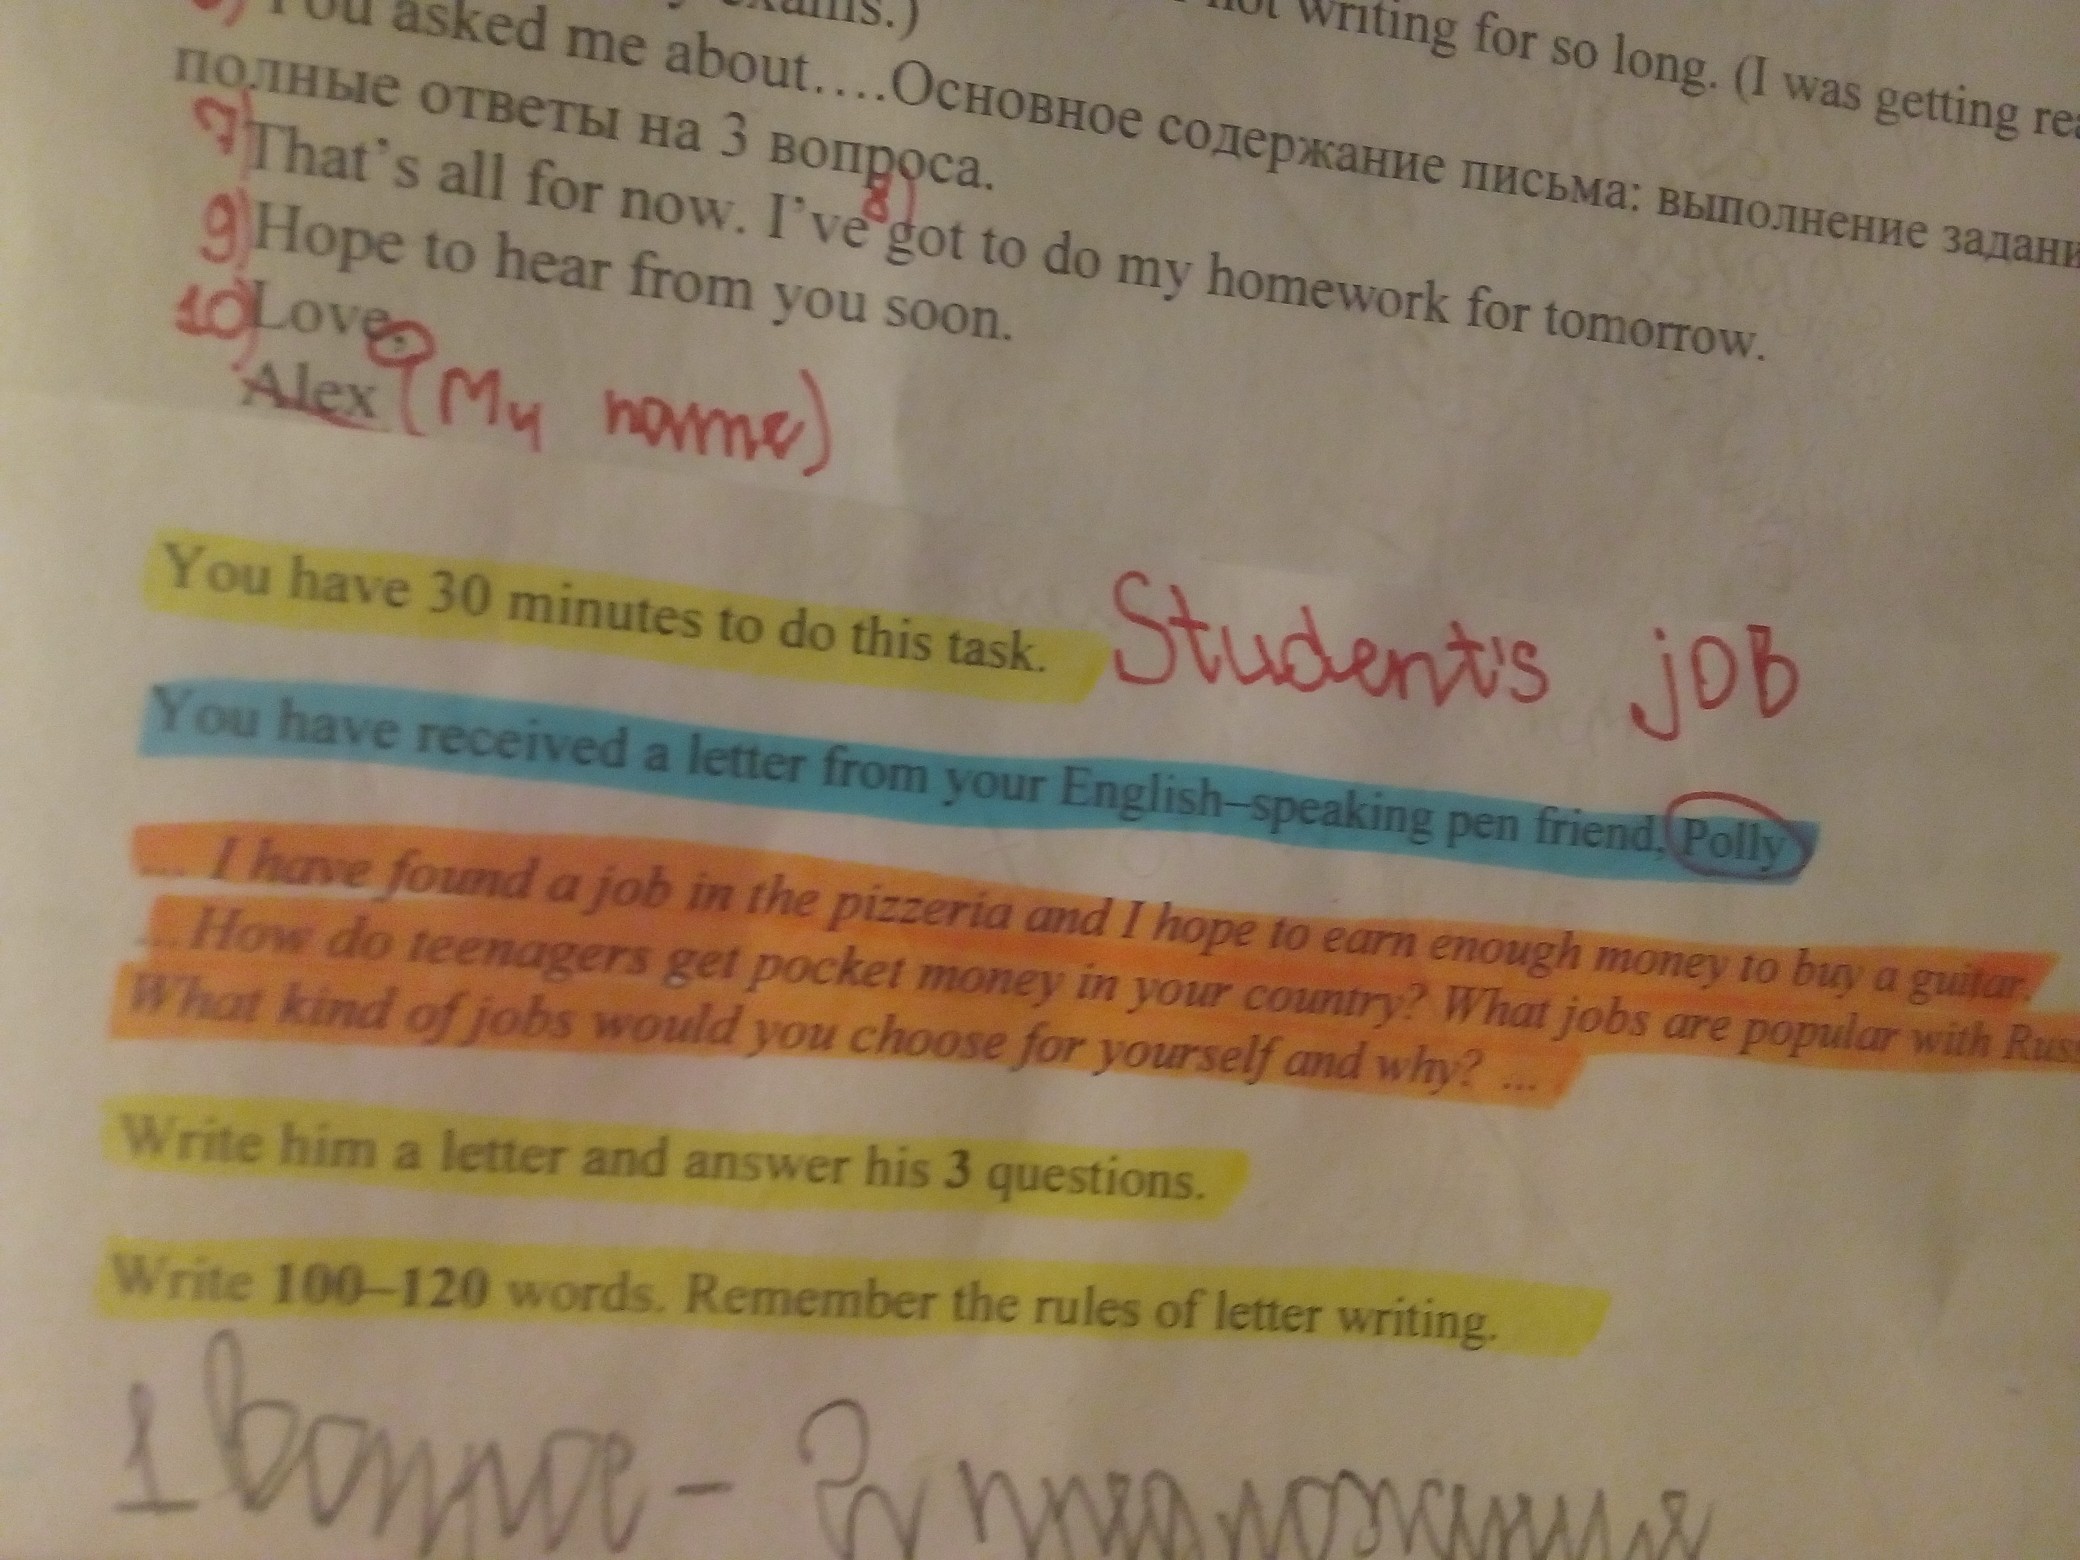 You asked me about....Основное содержание письма: выполнение
not writing for so long. (I was getting
полные ответы на 3 вопроса.
7) That's all for now. 8) I've got to do my homework for tomorrow.
9) Hope to hear from you soon.
10) Love,
Alex (My name)
You have 30 minutes to do this task. Student's job
You have received a letter from your English–speaking pen friend, Polly
... I have found a job in the pizzeria and I hope to earn enough money to buy a guitar.
... How do teenagers get pocket money in your country? What jobs are popular with
What kind of jobs would you choose for yourself and why? ...
Write him a letter and answer his 3 questions.
Write 100–120 words. Remember the rules of letter writing.
1 вопрос – 2 предложения